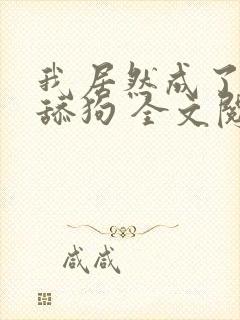 我居然成了
舔狗 全文阅
咸咸